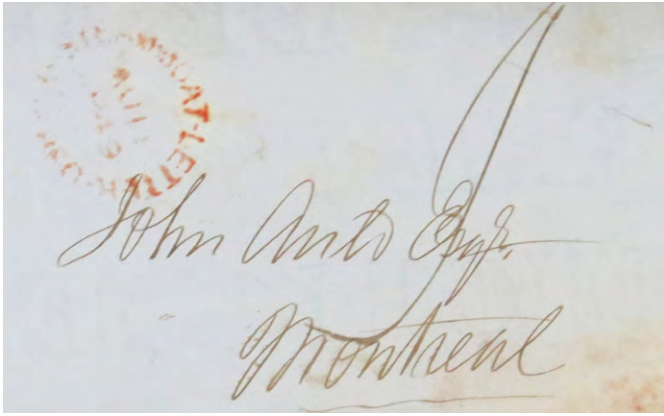 STEAMBOAT-LETTER
9
John Auld Esqr.
Montreal